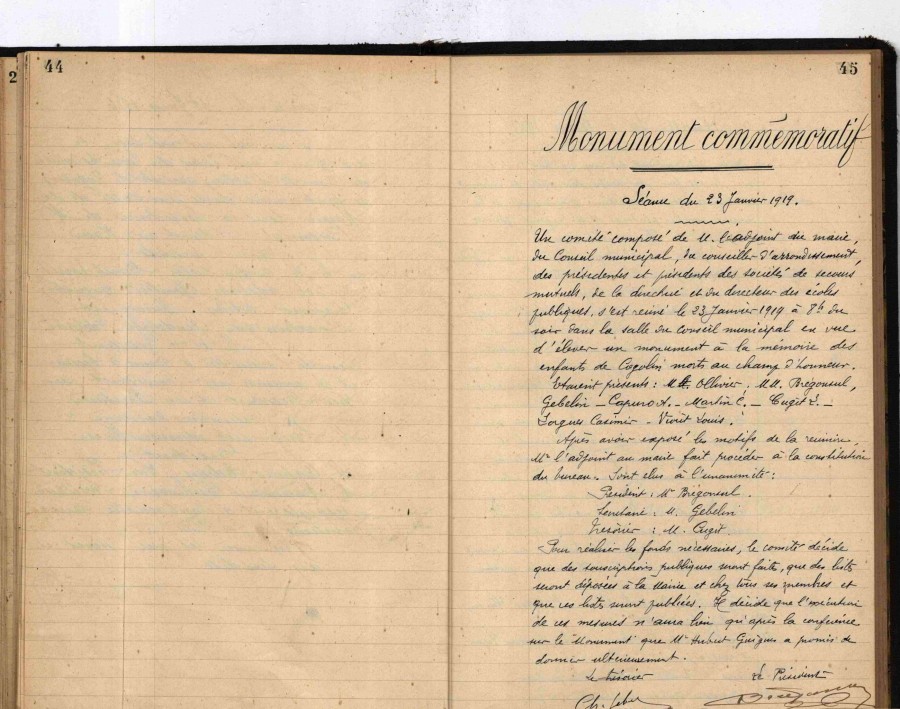 2
44
45
Monument commémoratif
Séance du 23 Janvier 1919.
Un comité composé de M. l'adjoint au maire,
du Conseil municipal, du conseiller d'arrondissement,
des présidentes et présidents des sociétés de secours
mutuels, de la directrice et du directeur des écoles
publiques, s'est réuni le 23 Janvier 1919 à 8h du
soir dans la salle du conseil municipal en vue
d'élever un monument à la mémoire des
enfants de Cogolin morts au champ d'honneur.
Etaient présents : Ollivier, MM. Brégonsul,
Gebelin - Capuro A. - Martin C. - Cugit -
Casimir - Louis.
Après avoir exposé les motifs de la réunion,
Mr l'adjoint au maire fait procéder à la constitution
du bureau. Sont élus à l'unanimité :
Président : Mr Brégonsul.
Secrétaire : M. Gebelin
Trésorier : M. Cugit.
Pour réaliser les fonds nécessaires, le comité décide
que des souscriptions publiques seront faites, que des listes
seront déposées à la Mairie et chez tous ses membres et
que ces listes seront publiées. Il décide que l'exécution
de ces mesures n'aura lieu qu'après la conférence
sur le Monument que Mr Guigues a promis de
donner ultérieurement.
Le Président